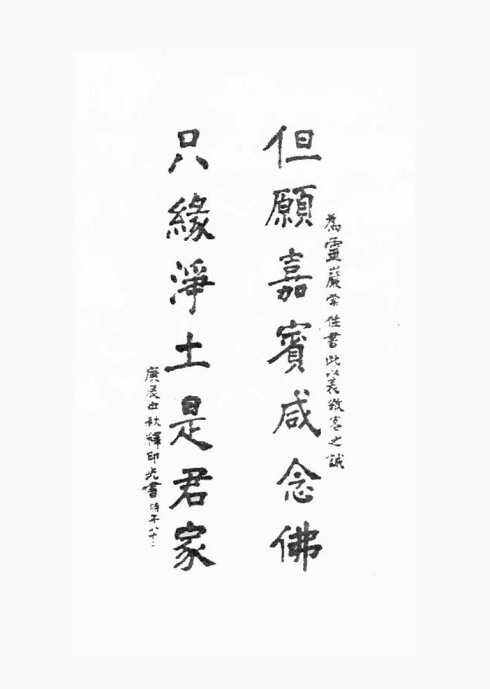 為靈巖常住書此以表客之誠
但願嘉賓咸念佛
只緣淨土是君家
庚辰秋釋印光書時年八十